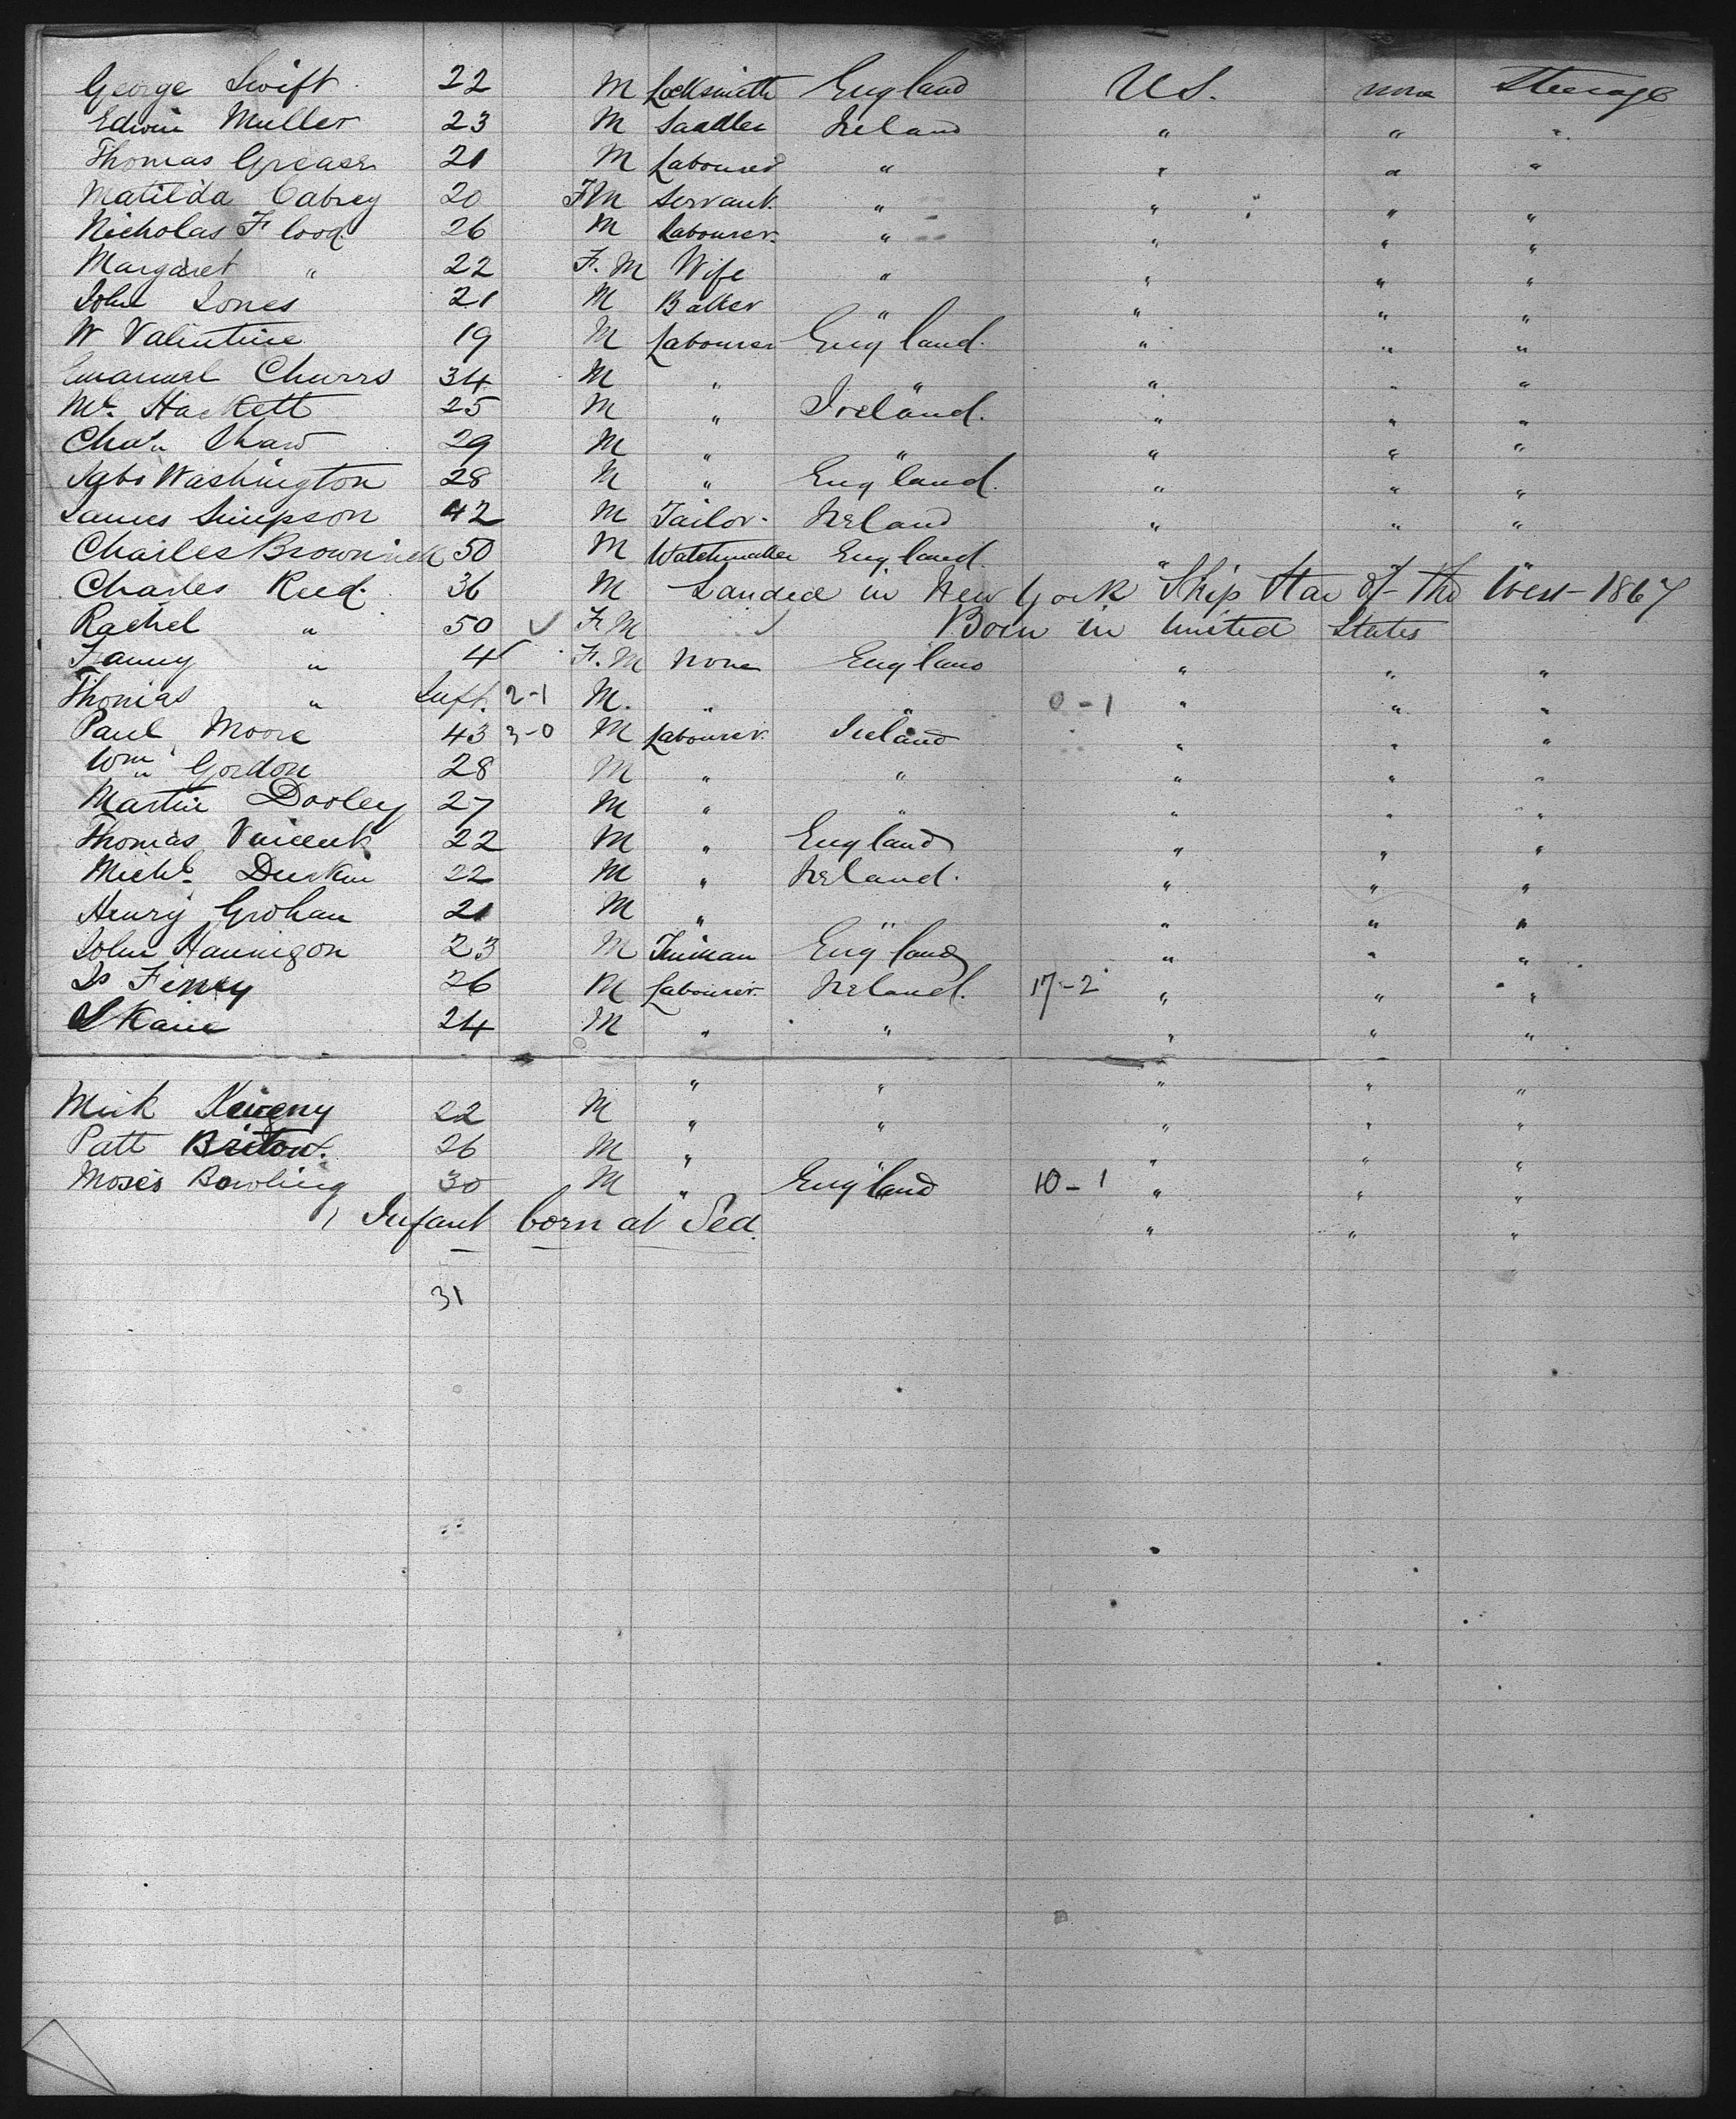 George Swift 22 M Locksmith England U S. none Steerage
Edwin Muller 23 M Saddler Ireland " " "
Thomas Grease 21 M Labourer " " " "
Matilda Cabrey 20 F M Servant " " " "
Nicholas Flood 26 M Labourer " " " "
Margaret " 22 F. M Wife " " " "
John Jones 21 M Baker " " " "
W Valentine 19 M Labourer England " " "
Emanuel Churrs 34 M " " " " "
Ml. Hackett 25 M " Ireland. " " "
Chas Shaw 29 M " " " " "
Jabs Washington 28 M " England " " "
James Simpson 42 M Tailor Ireland " " "
Charles Browninck 50 M Watchmaker England " " "
Charles Reed 36 M Landed in New York Ship Star of the West - 1867
Rachel " 50 ✓ F M Born in United States
Fanny " 4 F. M None England " " "
Thomas " Inft. 2-1 M. " " 0-1 " " "
Paul Moore 43 3-0 M Labourer Ireland " " "
Wm Gordon 28 M " " " " "
Martin Dooley 27 M " " " " "
Thomas Vincent 22 M " England " " "
Michl Durkin 22 M " Ireland. " " "
Henry Grohan 21 M " " " " "
John Hannigon 23 M England " " "
Js Finey 26 M Labourer Ireland. 17-2 " " "
Kane 24 M " " " " "
" " " " "
Mick 22 M " " " " "
Patt Briton. 26 M " " " " "
Moses Bowling 30 M " England 10-1 " " "
1 Infant born at Sea. " " "
31